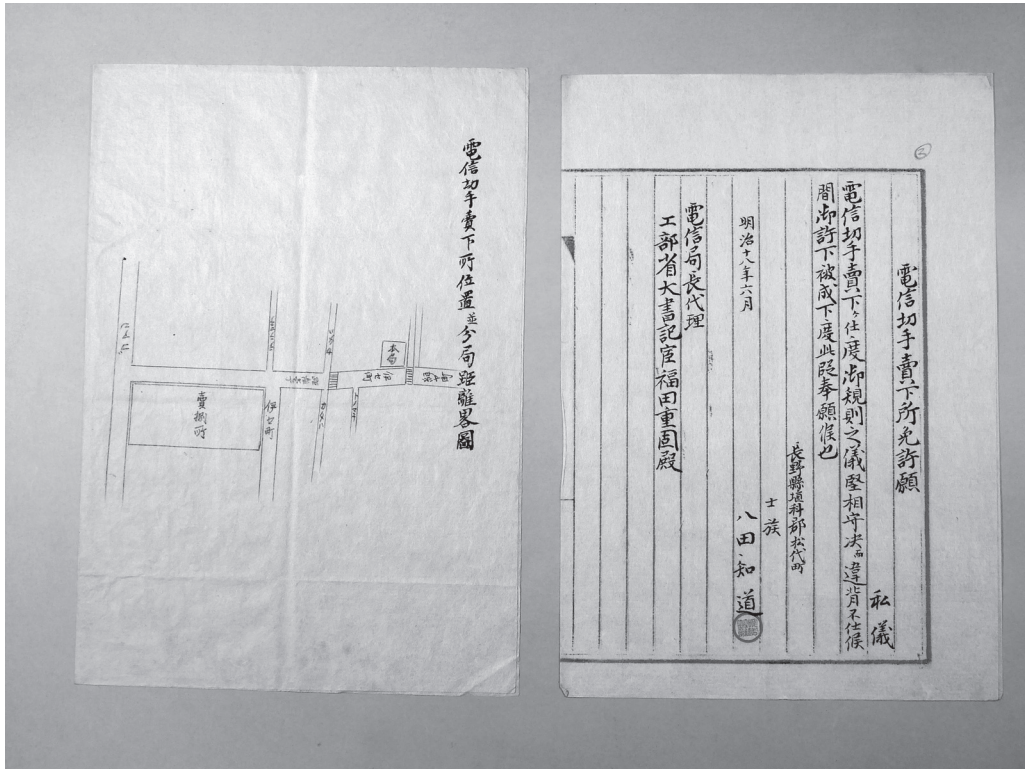 電信切手賣下所免許願
私儀
電信切手賣下ヶ仕度御規則之儀堅相守决而違背不仕候
間御許下被成下度此段奉願候也
長野縣埴科郡松代町
士族
八田知道
明治十八年六月
電信局長代理
工部省大書記官福田重固殿
電信切手賣下所位置並分局距離畧圖
本局
伊勢町
賣捌所